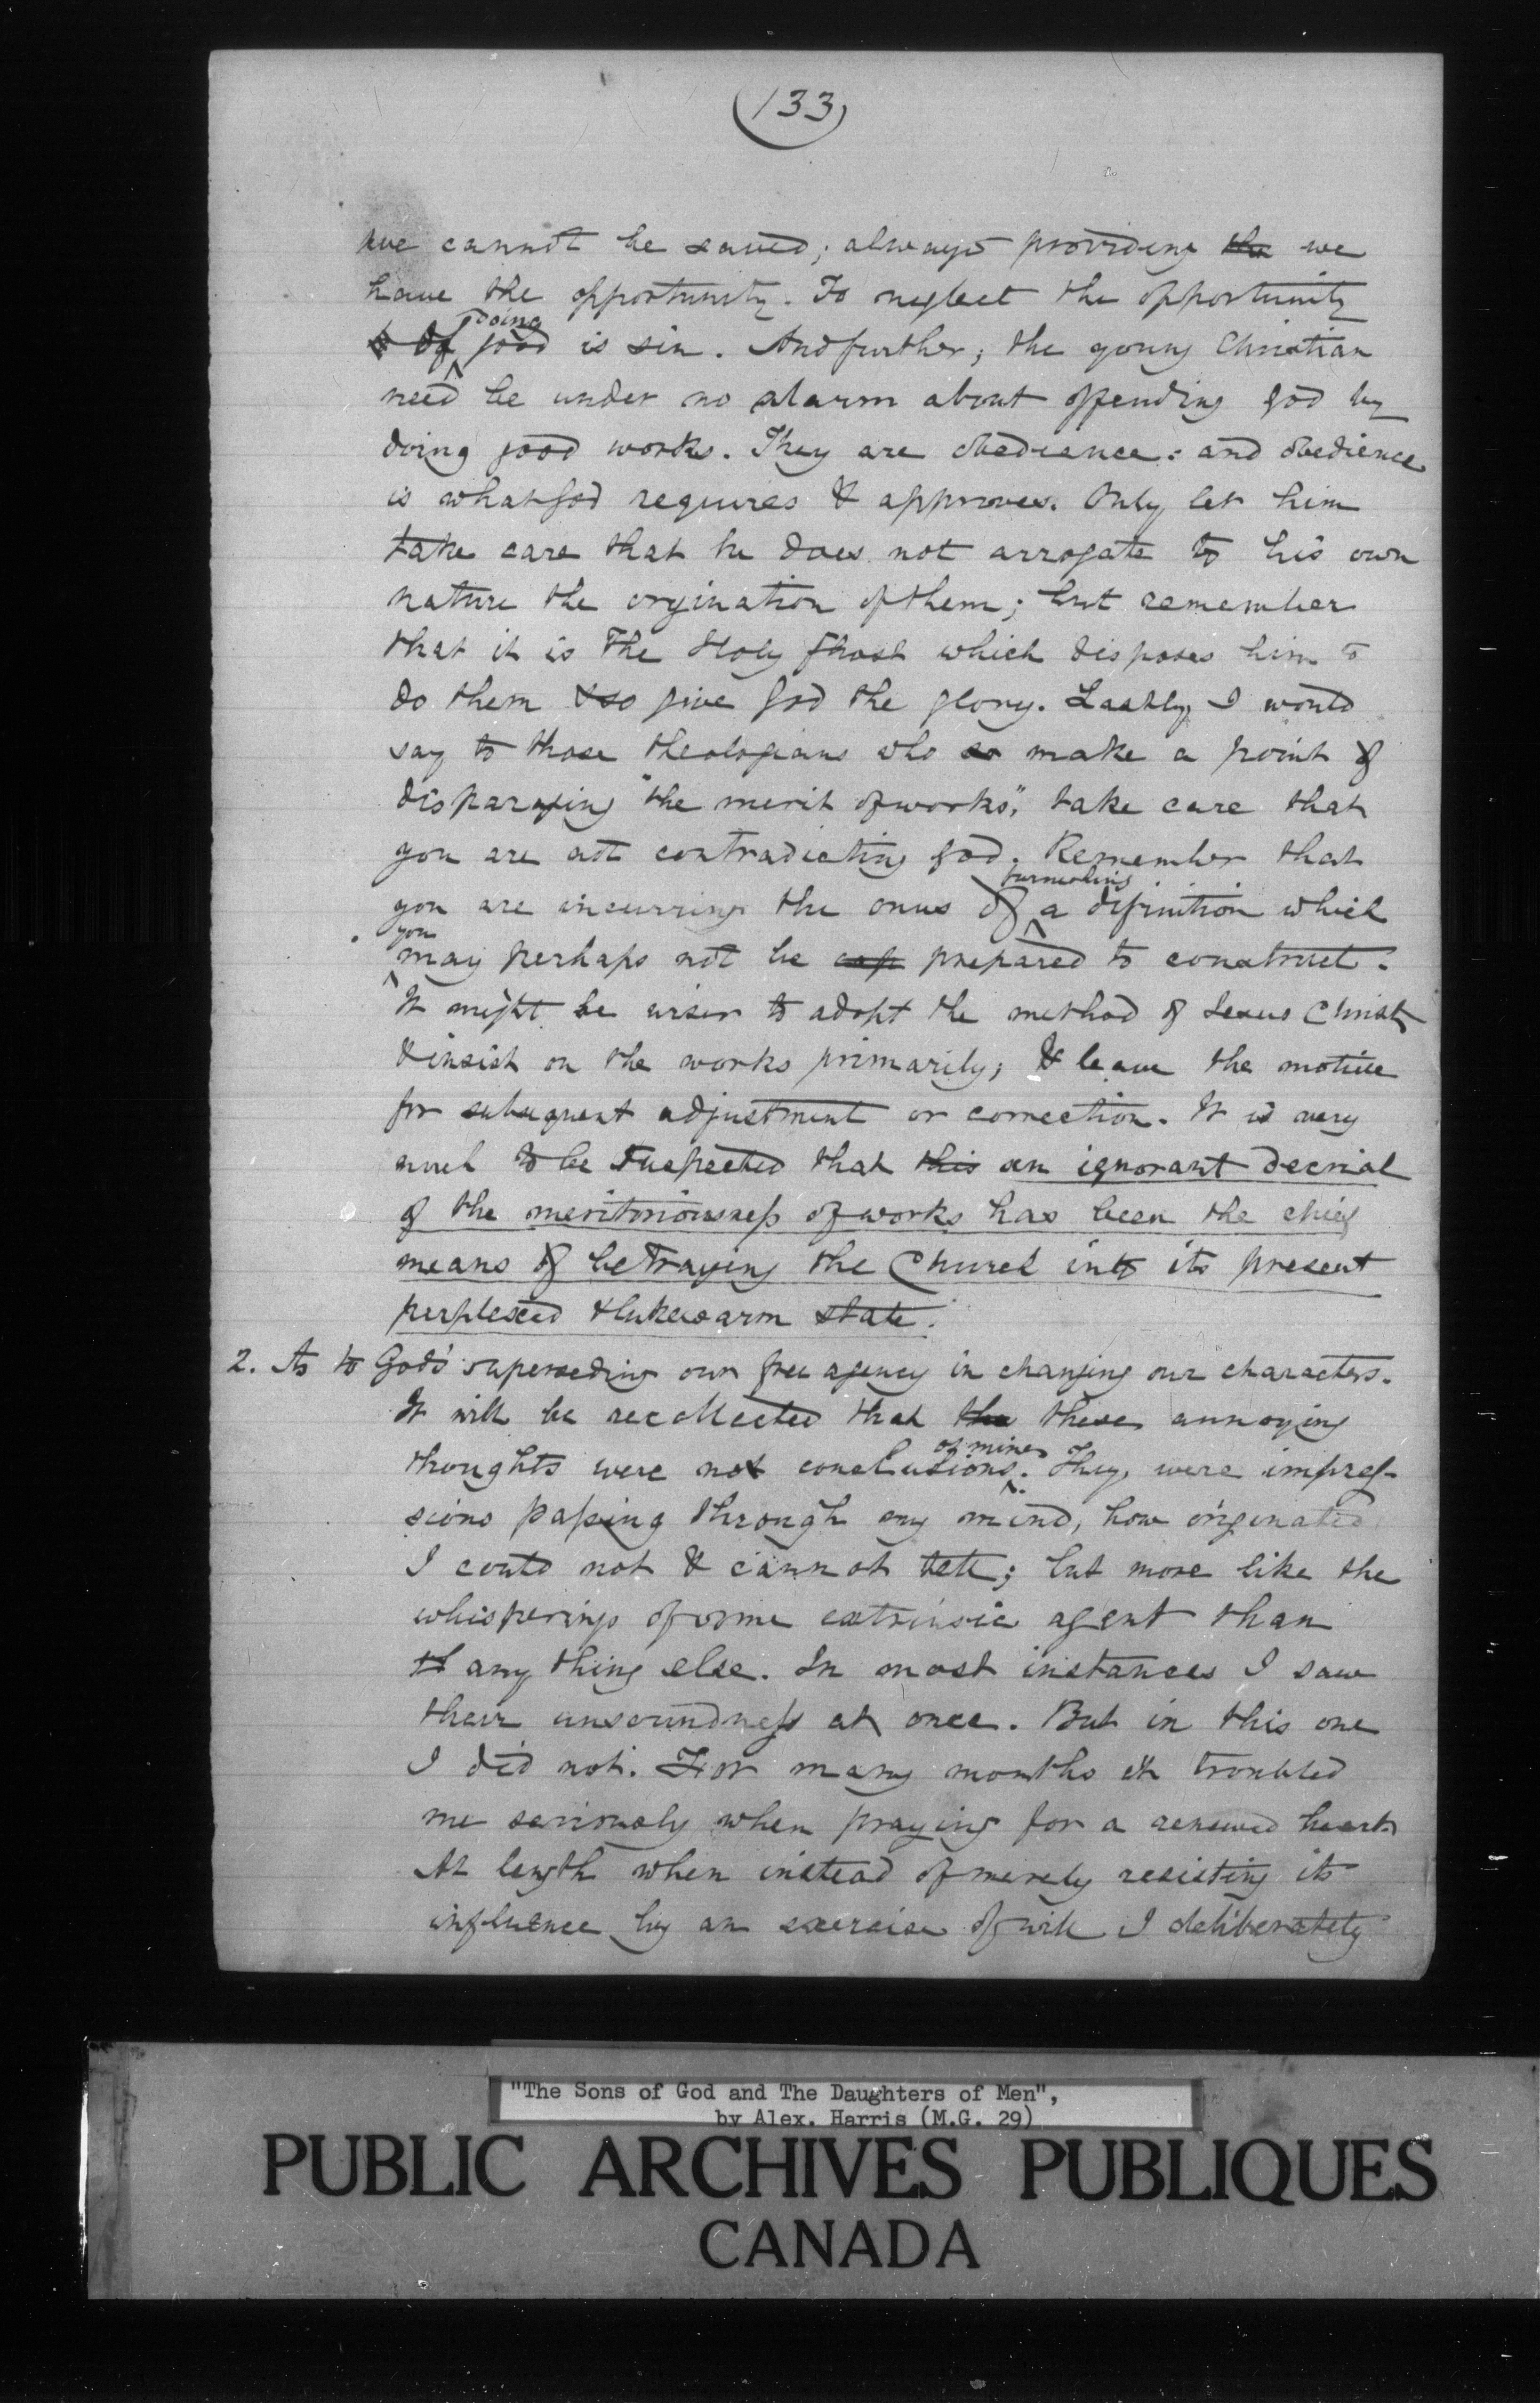 (133)
we cannot be saved; always providing the we
have the opportunity. To neglect the opportunity
of doing good is sin. And further; the young Christian
need be under no alarm about offending God by
doing good works. They are obedience: and obedience
is what God requires & approves. Only let him
take care that he does not arrogate to his own
nature the orgination of them; but remember
that it is The Holy Ghost which disposes him to
do them & so give God the glory. Lastly, I would
say to those theologians who so make a point of
disparaging "the merit of works", take care that
you are not contradicting God. Remember that
you are incurring the onus of furnishing a definition which
you may perhaps not be cap prepared to construct.
It might be wiser to adopt the method of Jesus Christ
& insist on the works primarily; & leave the motive
for subsequent adjustment or correction. It is very
much to be suspected that this an ignorant decrial
of the meritoriousness of works has been the chief
means of betraying the Church into its present
perplexed & lukewarm state.
2. As to God's superseding our free agency in changing our characters.
It will be recollected that the these annoying
thoughts were not conclusions of mine. They were impres-
sions passing through my mind, how originated
I could not & cannot tell; but more like the
whisperings of some extrinsic agent than
th any thing else. In most instances I saw
their unsoundness at once. But in this one
I did not. For many months it troubled
me seriously when praying for a renewed heart.
At length when instead of merely resisting its
influence by an exercise of will I deliberately
"The Sons of God and The Daughters of Men",
by Alex. Harris (M.G. 29)
PUBLIC ARCHIVES PUBLIQUES
CANADA